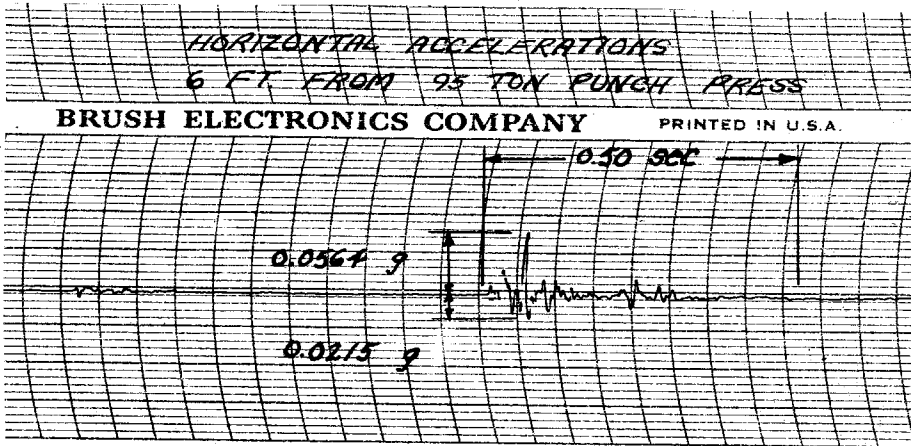 HORIZONTAL ACCELERATIONS
6 FT. FROM 95 TON PUNCH PRESS
BRUSH ELECTRONICS COMPANY PRINTED IN U.S.A.
0.50 SEC
0.0564 g
0.0215 g